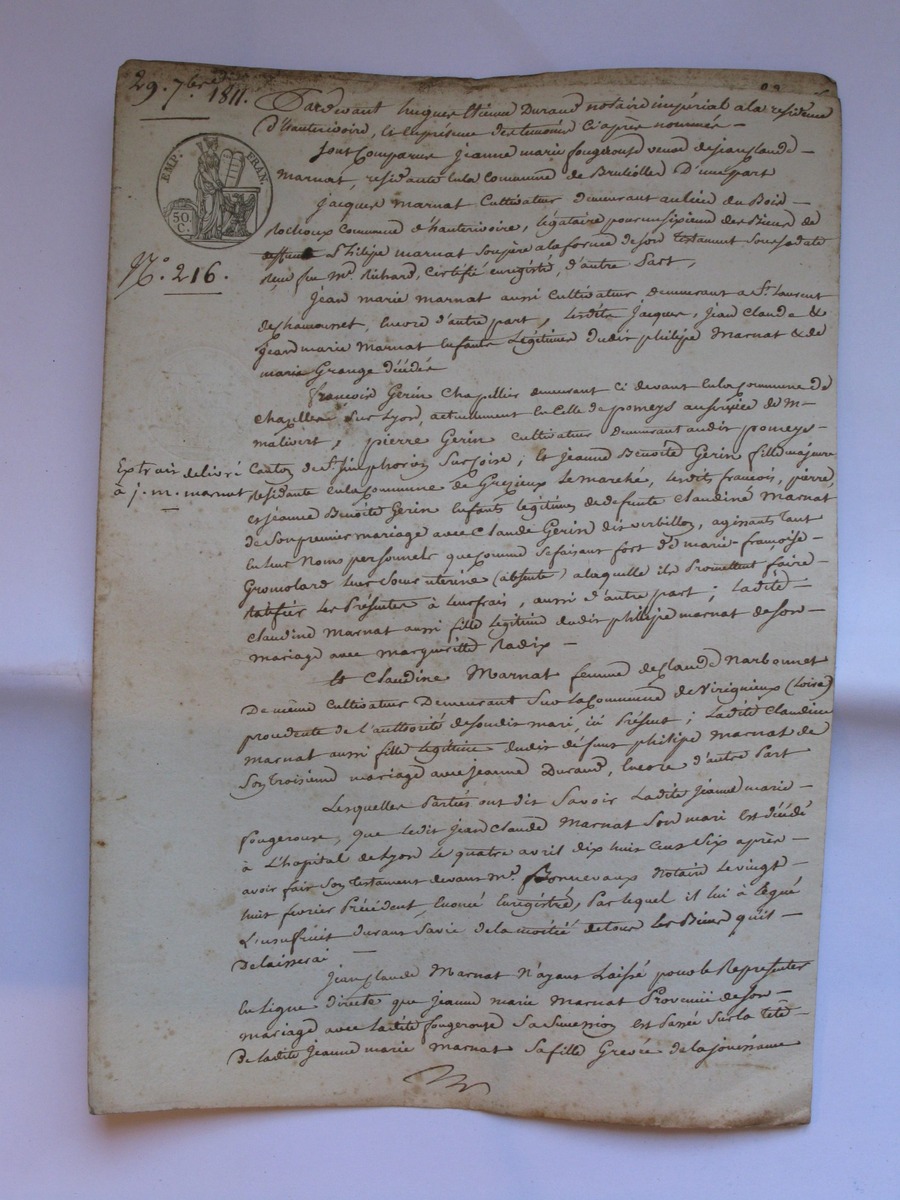 29. 7bre 1811.
Pardevant hugues Etienne Durand notaire imperial a la residence
d'hauterivoire, et En presence des temoins Ci après nommés —
EMP. FRAN.
50 C.
Sont Comparus jeanne marie fougerouse veuve de jean claude —
Marnat, residante En la Commune de Bruliolles D'une part
Jacques Marnat Cultivateur demeurant au lieu du Bois —
Rochoux Commune d'hauterivoire, légataire pour un sixieme des Biens de
deffunt Philipe Marnat Son père a la forme de Son testament Sous sa date
Reçu feu Me. Richard, Certifié enregistré, d'autre Part,
N.º 216.
Jean marie marnat aussi Cultivateur Demeurant a St. Laurent
de Chamousset, Encore d'autre part, Lesdits Jacques, jean Claude &
jean marie Marnat Enfants Légitimes dudit philipe Marnat & de
marie Grange décédés
françois Gerin Chapellier demeurant ci devant En la Commune de
Chapelle Sur Lyon, actuellement En Celle de pomeys
malivert, pierre Gerin Cultivateur Demeurant audit pomeys —
Canton de St. Simphorien Sur Coise, Et jeanne Benoite Gerin fille majeure
Extrait delivré
à j. m. marnat
residante En la Commune de Grezieux Le marché, Lesdits françois, pierre,
et jeanne Benoite Gerin Enfants légitimes de defunte Claudine Marnat
de Son premier mariage avec Claude Gerin dit verbillon, agissants tant
En leur Noms personnels que comme Se faisant fort de marie-françoise —
Gromolard leur Sœur uterine (absente) a laquelle ils Promettent faire
Ratifier Les Présentes à leurs frais, aussi d'autre part; Ladite —
Claudine Marnat aussi fille Légitime dudit philipe marnat de Son —
mariage avec margueritte Radix —
Et Claudine Marnat femme de Claude Narbonnet
De meme Cultivateur Demeurant Sur La Commune de Virignieux (Loire)
procédente de l'authorité de Sondit mari, ici Présent; Ladite Claudine
Marnat aussi fille Légitime dudit défunt philipe Marnat de
Son troisieme mariage avec jeanne Durand, Encore d'autre Part
Lesquelles Parties ont dit Savoir Ladite Jeanne marie —
fougerouse, que ledit jean Claude Marnat Son mari Est décédé
à L'hopital de Lyon Le quatre avril dix huit cent Six après —
avoir fait Son testament devant Me. Bonnevaux Notaire Le vingt —
huit fevrier Précédent, Enoncé Enregistré, Par lequel il lui à légué
L'usufruit durant Sa vie de la moitié de tous les Biens qu'il —
Delaisserai —
Jean Claude Marnat N'ayant Laissé pour le Representer
En Ligne directe que jeanne marie Marnat Provenüe de Son —
mariage avec Ladite fougerouse Sa Succession est Passée Sur la Tete —
De ladite Jeanne marie Marnat Sa fille Grevée de la jouissance